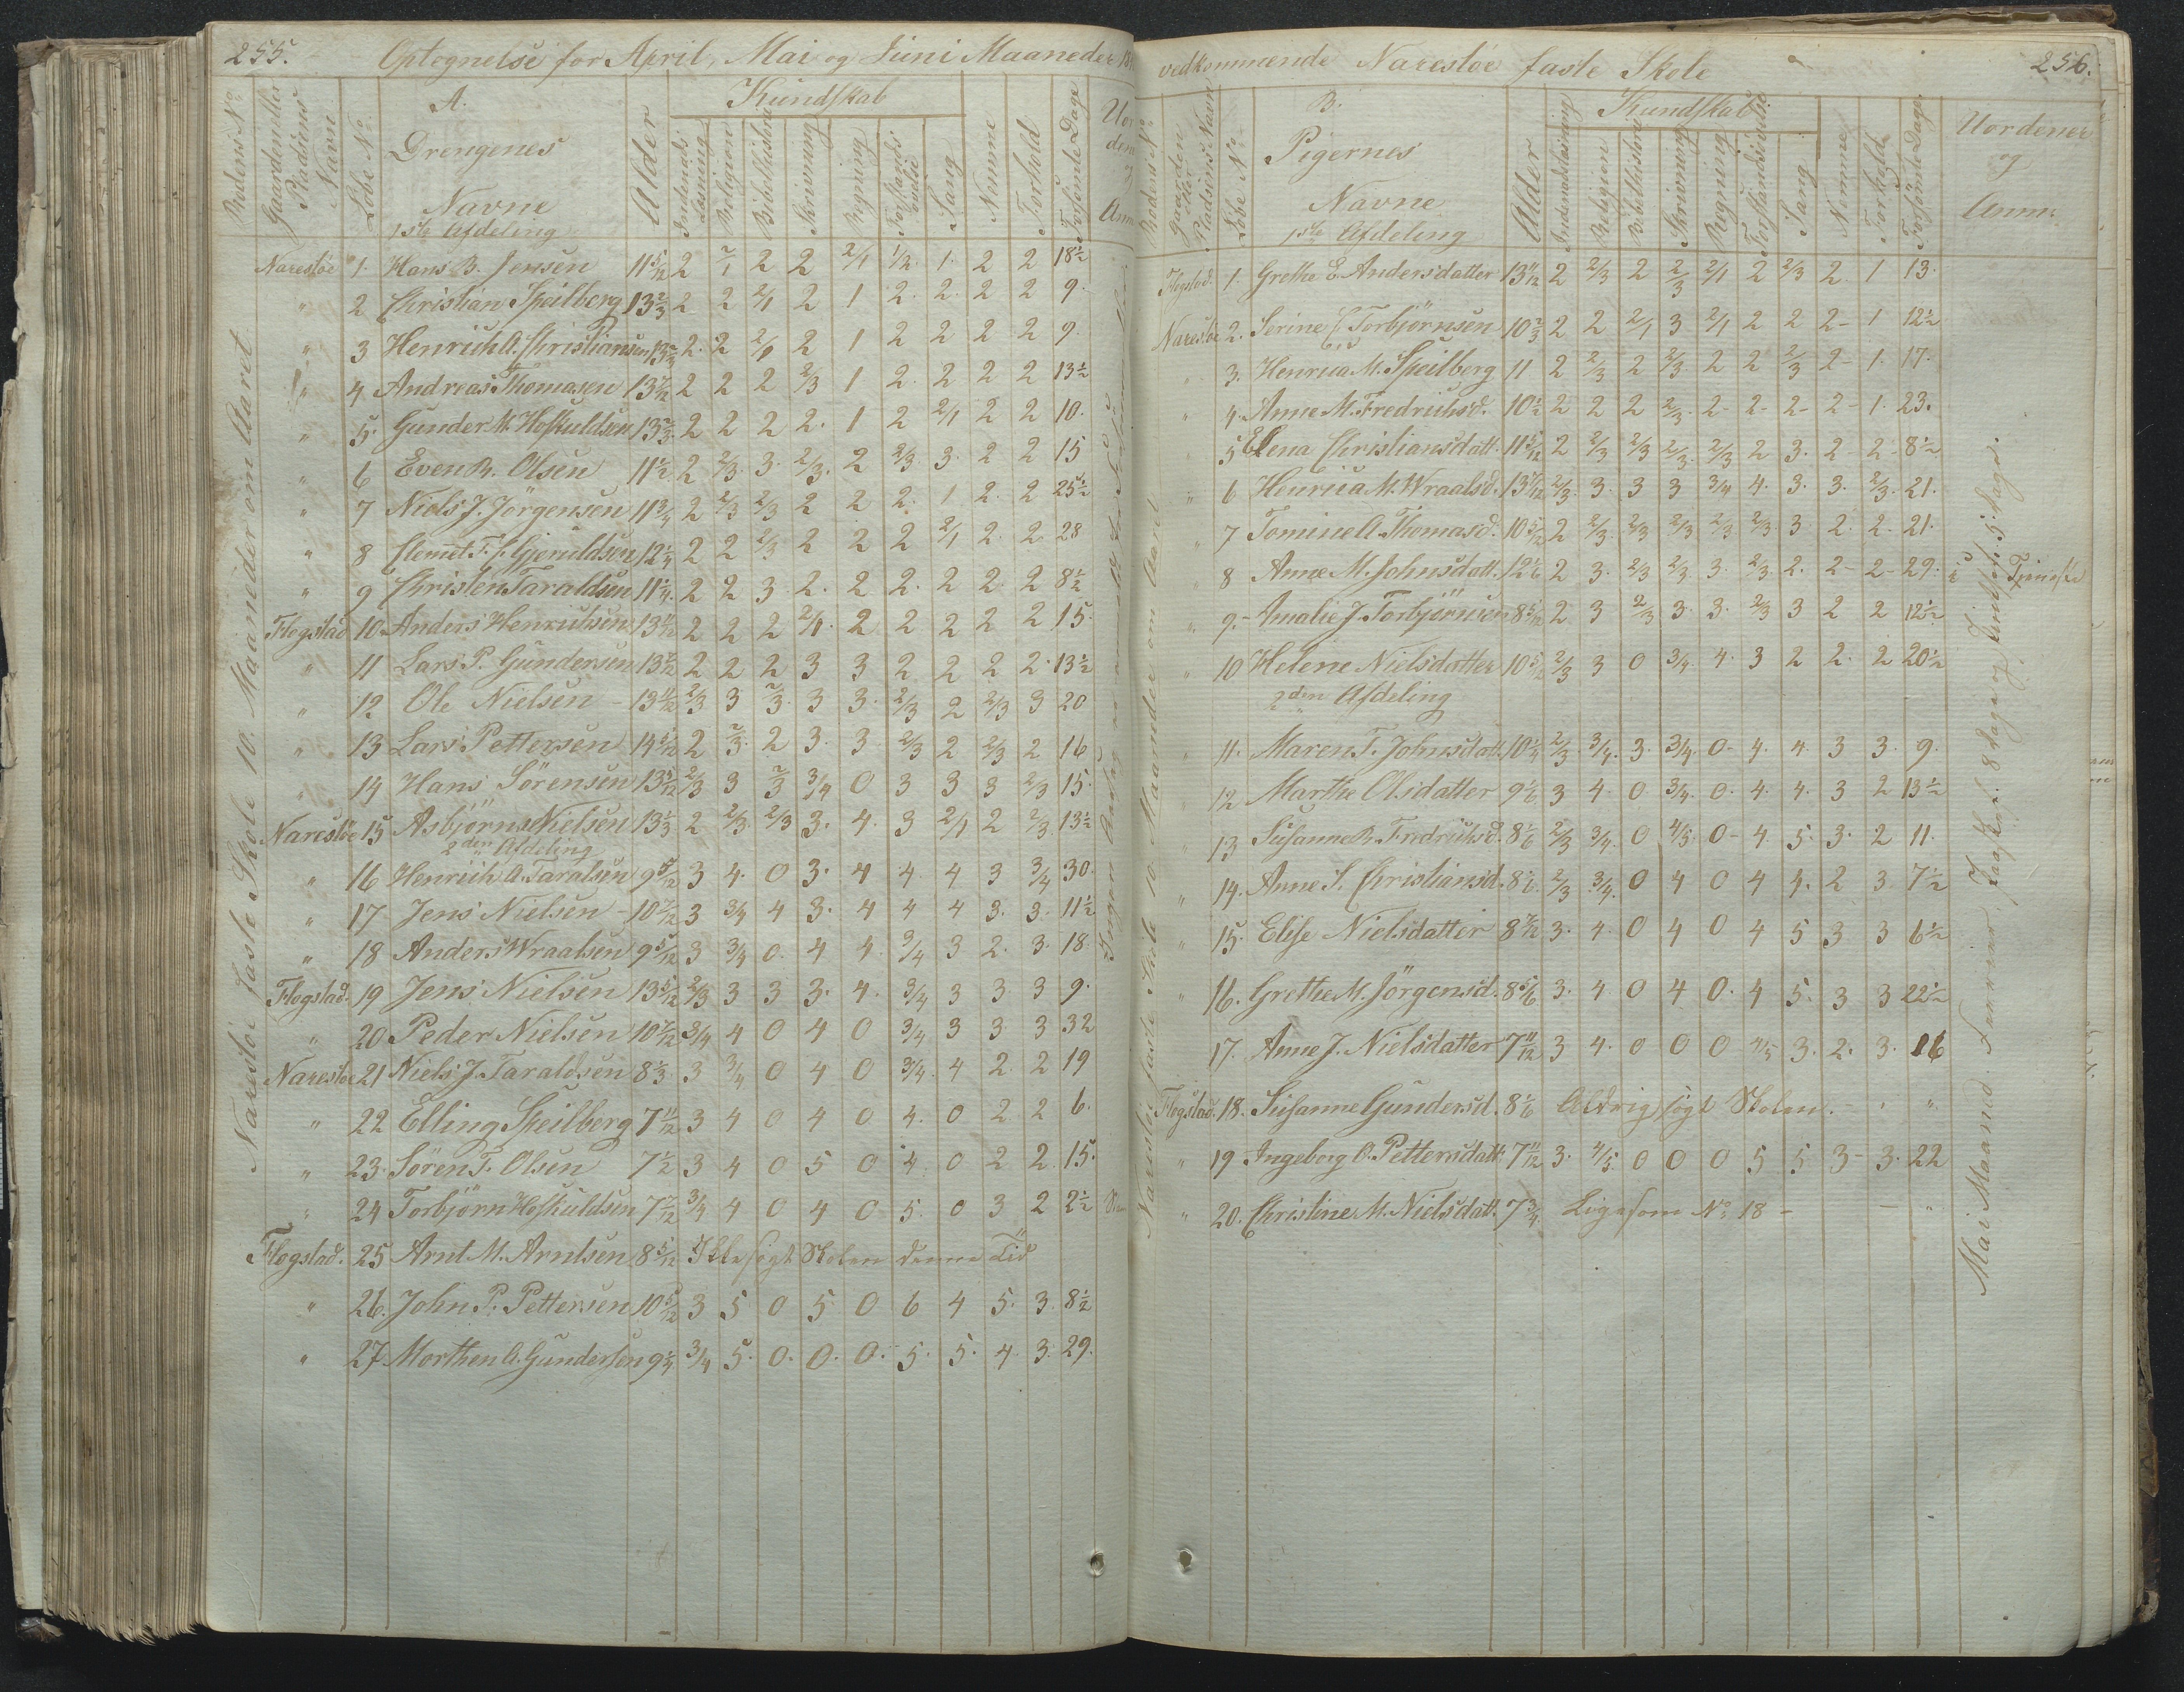 255.
Optegnelse for April, Mai og Juni Maaneder
Rodens No.
Gaardens eller Pladsens Navn
Løbe No.
A.
Drengenes
Navne
1ste Afdeling
Alder
Kundskab
Indenads Læsning
Religion
Bibelhistorie
Skrivning
Regning
Forstandsøvelse
Sang
Nemme
Forhold
Forsømte Dage
Naresløe faste Skole 10. Maaneder om Aaret
Naresløe 1. Hans B. Jensen 11 5/12 2 2/1 2 2 2/1 1/2 1. 2 2 18½
" 2 Christian Speilberg 13 2/3 2 2 2/1 2 1 2. 2. 2 2 9.
" 3 Henrich A. Christiansen 13 2/3 2. 2 2/1 2 1 2 2 2 2 9.
" 4 Andreas Thomasen 13 7/12 2 2 2 2/3 1 2. 2 2 2 13½
" 5. Gunder M. Hofkuldsen 13 2/3 2 2 2 2. 1 2 2/1 2 2 10.
" 6 Even R. Olsen 11½ 2 2/3. 3. 2/3. 2 2/3 3. 2 2 15
" 7 Niels J. Jörgensen 11 3/4 2 2/3 2/3 2 2 2. 1 2. 2 25½
" 8 Clemet F. J. Gjeruldsen 12 1/4 2 2 2/3 2 2 2 2/1 2. 2. 28
" 9 Christen Taraldsen 11 1/4. 2 2 3. 2. 2 2. 2 2 2 8½
Flogstad 10. Anders Henrichsen 13 11/12 2 2 2 2/1. 2 2 2 2 2 15.
" 11 Lars P. Gundersen 13 7/12 2 2 2 3 3 2 2 2 2. 13½
" 12 Ole Nielsen - 13 11/12 2/3 3 2/3. 3 3. 2/3 2 2/3 3 20
" 13 Lars Pettersen 14 5/12 2 2/3. 2 3. 3 2/3 2 2/3 2 16
" 14 Hans Sörensen 13 5/12 2/3 3 2/3 3/4 0 3 3 3 2/3 15.
Naresløe 15 Asbjörn Nielsen 13 1/3 2 2/3. 2/3 3. 4. 3 2/1 2 2/3. 13½
2den Afdeling
" 16 Henrich A. Taralsen 9 5/12 3 4. 0 3. 4 4. 4 3 3/4 30.
" 17 Jens Nielsen - 10 7/12 3 3/4 4 3. 4 4 4 3. 3. 11½
" 18 Anders Wraalsen 9 5/12 3 3/4 0. 4 4. 3/4 3 2. 3. 18
Flogstad. 19 Jens Nielsen 13 5/12 2/3 3 3 3. 4. 3/4 3 3 3 9.
" 20 Peder Nielsen 10 7/12 3/4 4 0 4 0 3/4 3 3 3 32
Naresløe 21 Niels J. Taraldsen 8 1/3. 3 3/4 0 4 0 3/4. 4 2. 2 19
" 22 Elling Speilberg 7 11/12 3 4 0 4 0 4. 0 2 2 6.
" 23. Sören T. Olsen 7½ 3 4 0 5 0 4. 0 2 2. 15.
" 24 Torbjörn Hofkuldsen 7 7/12 3/4 4 0 4 0 5. 0 3 2 2½
Flogstad. 25 Arnt M. Arntsen 8 5/12 Ikke søgt Skolen denne Tid
" 26. John P. Pettersen 10 5/12 3 5 0 5 0 6 4 5. 3. 8½
" 27. Morthen A. Gundersen 9 1/4 3/4 5. 0. 0. 0. 5. 5. 4. 3. 29.
256.
vedkommende Naresløe faste Skole
Rodens No.
Gaardens eller Pladsens Navn
Løbe No.
B.
Pigernes
Navne
1ste Afdeling
Alder
Kundskab
Indenadslæsning
Religion
Bibelhistorie
Skrivning
Regning
Forstandsøvelse
Sang
Nemme
Forhold
Forsømte Dage
Uordener
og
Anm:
Naresløe faste Skole 10 Maaneder om Aaret
Flogstad. 1. Grethe E. Andersdatter 13 11/12 2 2/3 2 2/3 2/1 2 2/3 2. 1 13.
Naresløe 2. Serine C. Torbjörnsen 10 2/3 2 2 2/1 3 2/1 2 2 2- 1 12½
" 3. Henrica M. Speilberg 11 2 2/3 2 2/3 2 2 2/3 2- 1. 17.
" 4. Anne M. Fredrichsd. 10½ 2 2 2 2/3. 2- 2- 2- 2- 1. 23.
" 5 Elena Christiansdatt. 11 5/12 2 2/3 2/3 2/3. 2/3 2 3. 2- 2- 8½
" 6 Henrica M. Wraalsd. 13 7/12 2/3. 3. 3 3 3/4 4. 3. 3. 2/3. 21.
" 7 Tomine A. Thomasd. 10 5/12 2 2/3. 2/3 2/3 2/3 2/3 3 2. 2- 21.
" 8 Anne M. Johnsdatt. 12 1/6 2 3. 2/3 2/3 3. 2/3. 2. 2- 2- 29. i Tjeneste
" 9.- Amalie J. Torbjörnsen 8 5/12 2 3 2/3 3. 3. 2/3 3 2 2 12½
" 10 Helene Nielsdatter 10 5/12 2/3 3 0 3/4. 4. 3 2 2. 2 20½
2den Afdeling
" 11. Maren T. Johnsdatt. 10 1/4 2/3. 3/4. 3. 3/4. 0- 4. 4. 3 3. 9.
" 12 Marthe Olsdatter 9 1/6 3 4. 0 3/4. 0. 4. 4. 3 2 13½
" 13 Susanne R. Fredrichsd. 8 1/6 2/3 3/4. 0 4/5. 0- 4. 5. 3. 2 11.
" 14. Anne S. Christiansd. 8 1/6 2/3 3/4. 0 4 0 4 4. 2 3. 7½
" 15. Elise Nielsdatter 8 7/12 3. 4. 0 4 0 4 5 3 3 6½
" 16. Grethe M. Jörgensd. 8 5/6 3. 4 0 4 0. 4 5. 3 3 22½
17. Anne J. Nielsdatter 7 11/12 3 4. 0 0 0 4/5 3. 2. 3. 16
Flogstad. 18. Susanne Gundersd. 8 1/6 Aldrig søgt Skolen. - . "
" 19 Ingeborg O. Pettersdatt. 7 11/12 3. 4/5. 0 0 0 5 5 3- 3. 22
" 20. Christine M. Nielsdatt. 7 3/4 Ligesom No. 18 - - "